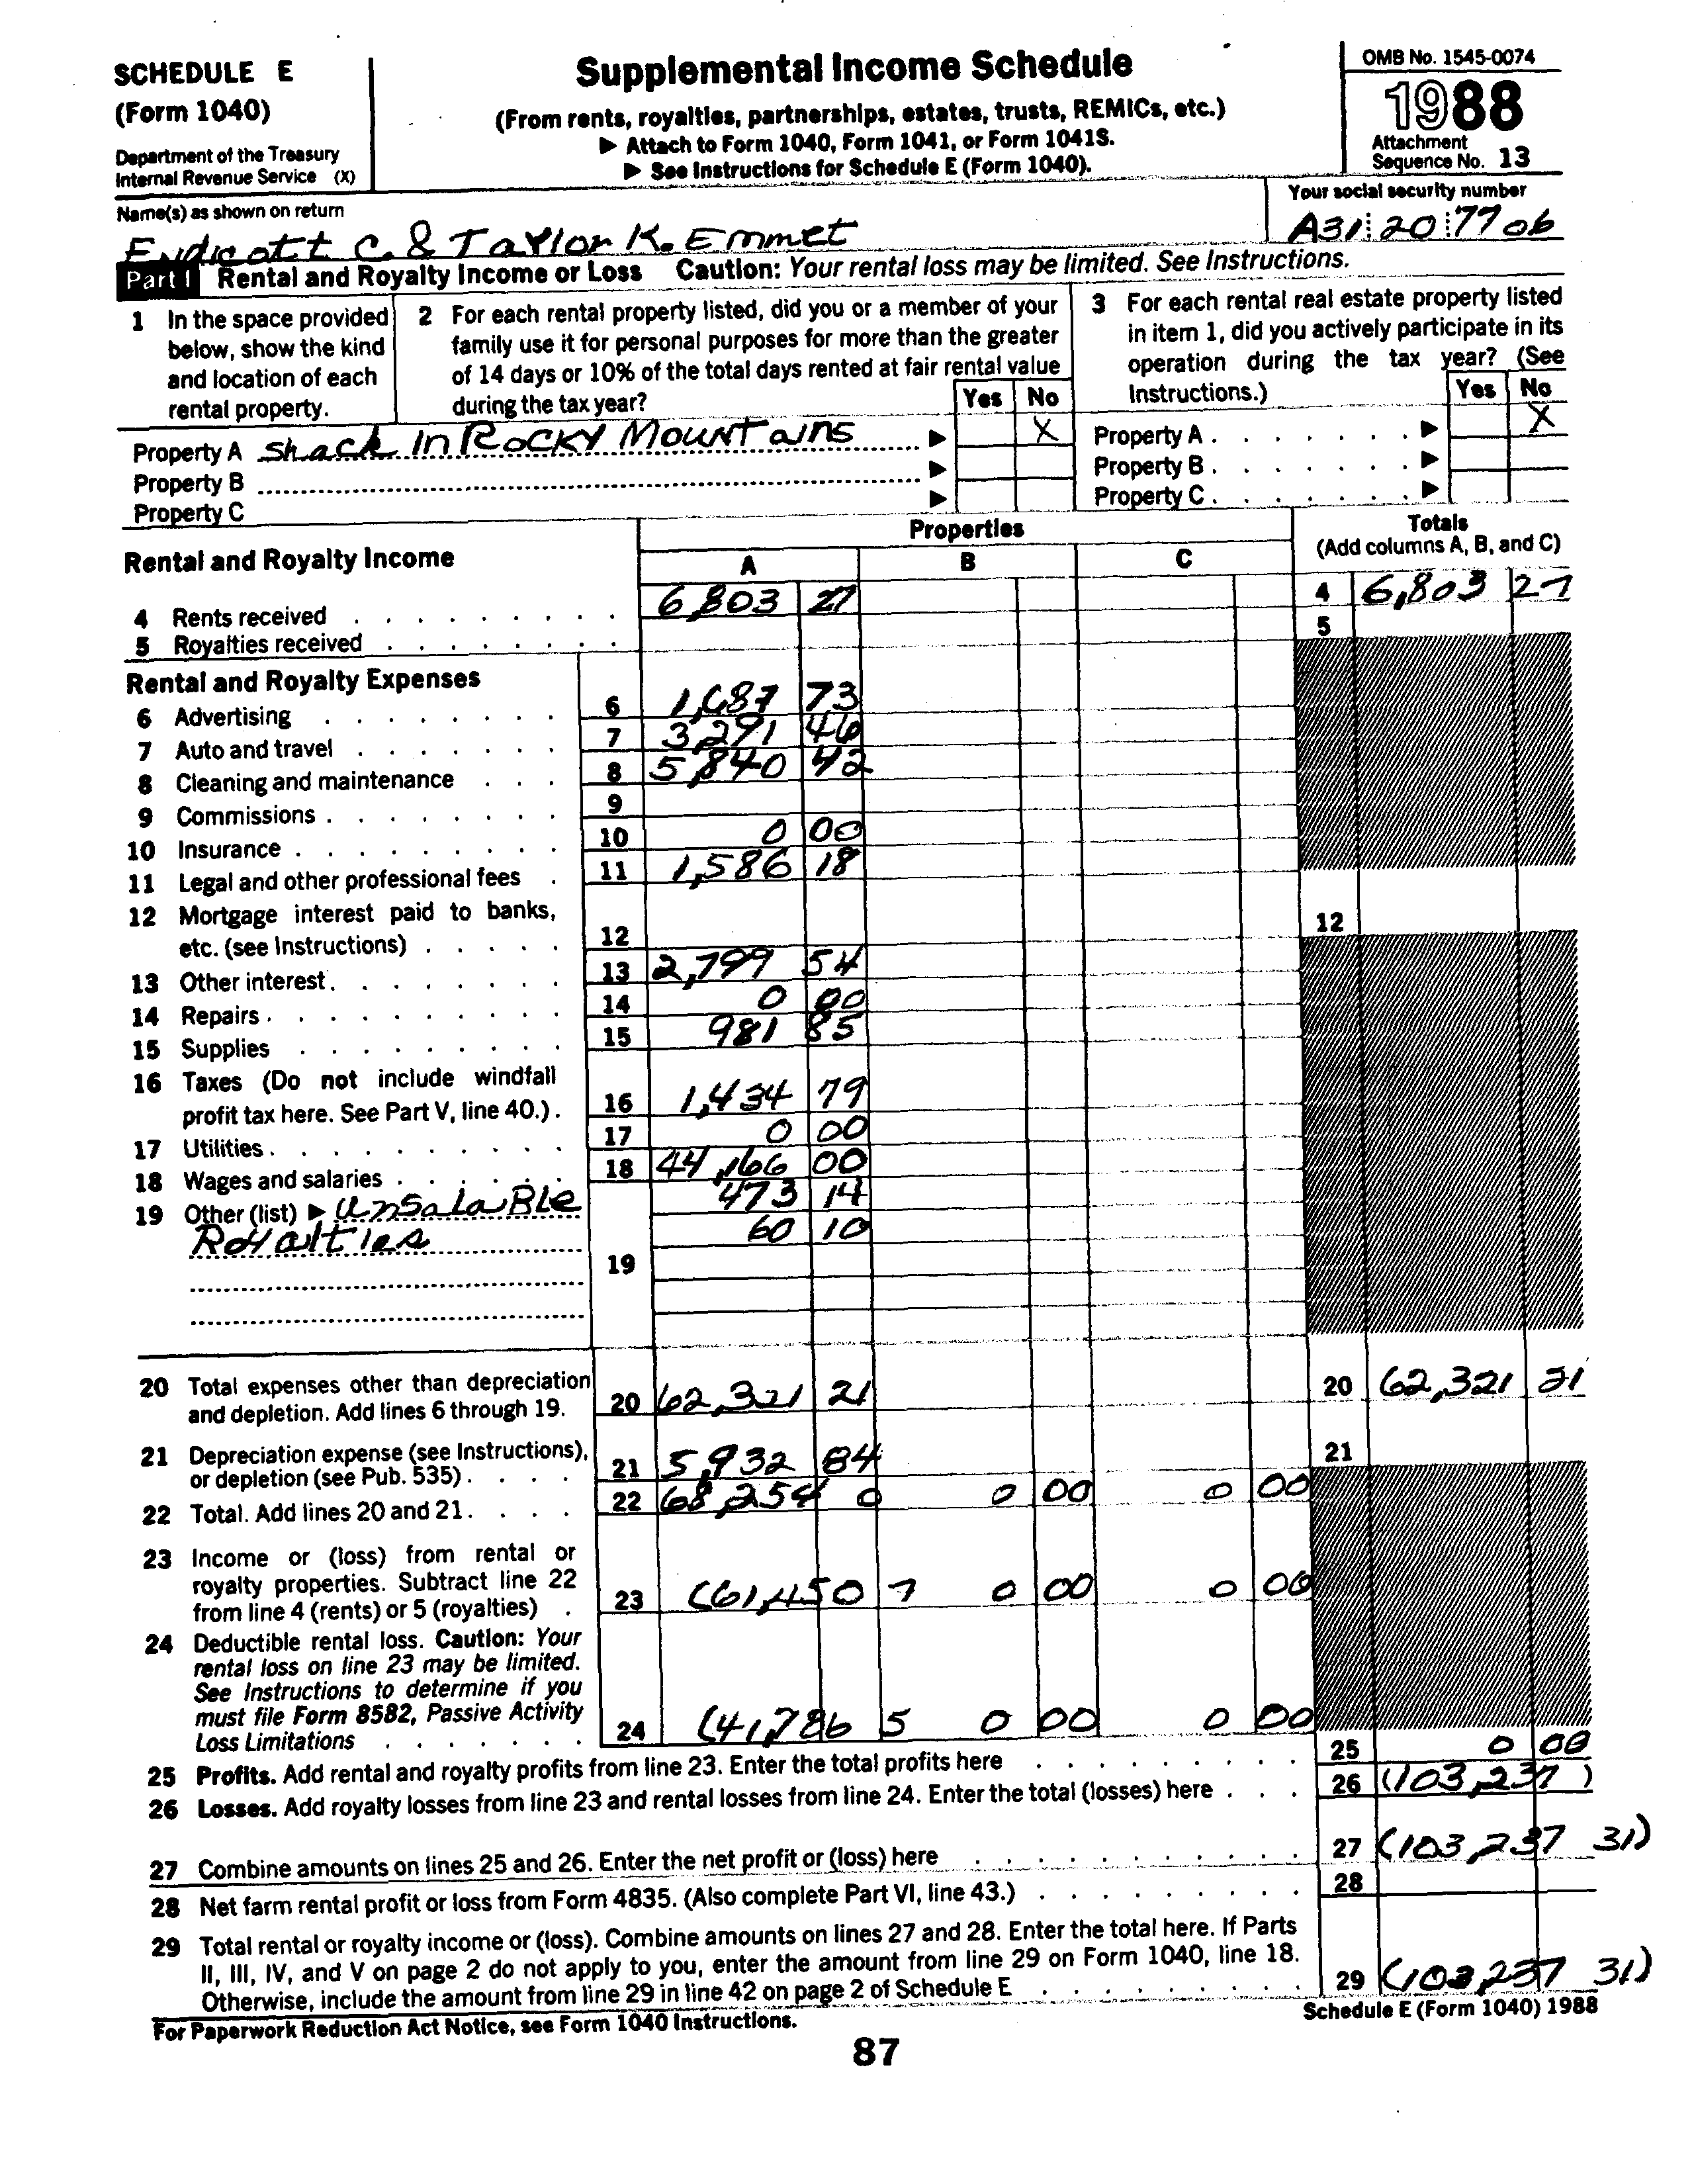 SCHEDULE E
(Form 1040)
Department of the Treasury
Internal Revenue Service (X)
Supplemental Income Schedule
(From rents, royalties, partnerships, estates, trusts, REMICs, etc.)
▶ Attach to Form 1040, Form 1041, or Form 1041S.
▶ See Instructions for Schedule E (Form 1040).
OMB No. 1545-0074
1988
Attachment
Sequence No. 13
Name(s) as shown on return
Endicott C. & Taylor K. Emmet
Your social security number
A31 20 7706
Part I Rental and Royalty Income or Loss Caution: Your rental loss may be limited. See Instructions.
1 In the space provided
below, show the kind
and location of each
rental property.
2 For each rental property listed, did you or a member of your
family use it for personal purposes for more than the greater
of 14 days or 10% of the total days rented at fair rental value
during the tax year?
Yes No
3 For each rental real estate property listed
in item 1, did you actively participate in its
operation during the tax year? (See
Instructions.)
Yes No
Property A Shack in Rocky Mountains ▶ X Property A ▶ X
Property B ▶ Property B ▶
Property C ▶ Property C ▶
Rental and Royalty Income
Properties
A B C
Totals
(Add columns A, B, and C)
4 Rents received 6,803 27 4 6,803 27
5 Royalties received 5
Rental and Royalty Expenses
6 Advertising 6 1,687 73
7 Auto and travel 7 3,291 46
8 Cleaning and maintenance 8 5,840 42
9 Commissions 9
10 Insurance 10 0 00
11 Legal and other professional fees 11 1,586 18
12 Mortgage interest paid to banks,
etc. (see Instructions) 12 12
13 Other interest 13 2,799 54
14 Repairs 14 0 00
15 Supplies 15 981 85
16 Taxes (Do not include windfall
profit tax here. See Part V, line 40.) 16 1,434 79
17 Utilities 17 0 00
18 Wages and salaries 18 44,166 00
19 Other (list) ▶ Unsalable 473 14
Royalties 60 10
19
20 Total expenses other than depreciation
and depletion. Add lines 6 through 19. 20 62,321 21 20 62,321 21
21 Depreciation expense (see Instructions),
or depletion (see Pub. 535) 21 5,932 84 21
22 Total. Add lines 20 and 21 22 68,254 0 0 00 0 00
23 Income or (loss) from rental or
royalty properties. Subtract line 22
from line 4 (rents) or 5 (royalties) 23 (61,450 7 0 00 0 00
24 Deductible rental loss. Caution: Your
rental loss on line 23 may be limited.
See Instructions to determine if you
must file Form 8582, Passive Activity
Loss Limitations 24 (41,786 5 0 00 0 00
25 Profits. Add rental and royalty profits from line 23. Enter the total profits here 25 0 00
26 Losses. Add royalty losses from line 23 and rental losses from line 24. Enter the total (losses) here 26 (103,237 )
27 Combine amounts on lines 25 and 26. Enter the net profit or (loss) here 27 (103,237 31)
28 Net farm rental profit or loss from Form 4835. (Also complete Part VI, line 43.) 28
29 Total rental or royalty income or (loss). Combine amounts on lines 27 and 28. Enter the total here. If Parts
II, III, IV, and V on page 2 do not apply to you, enter the amount from line 29 on Form 1040, line 18.
Otherwise, include the amount from line 29 in line 42 on page 2 of Schedule E 29 (103,237 31)
For Paperwork Reduction Act Notice, see Form 1040 Instructions.
Schedule E (Form 1040) 1988
87